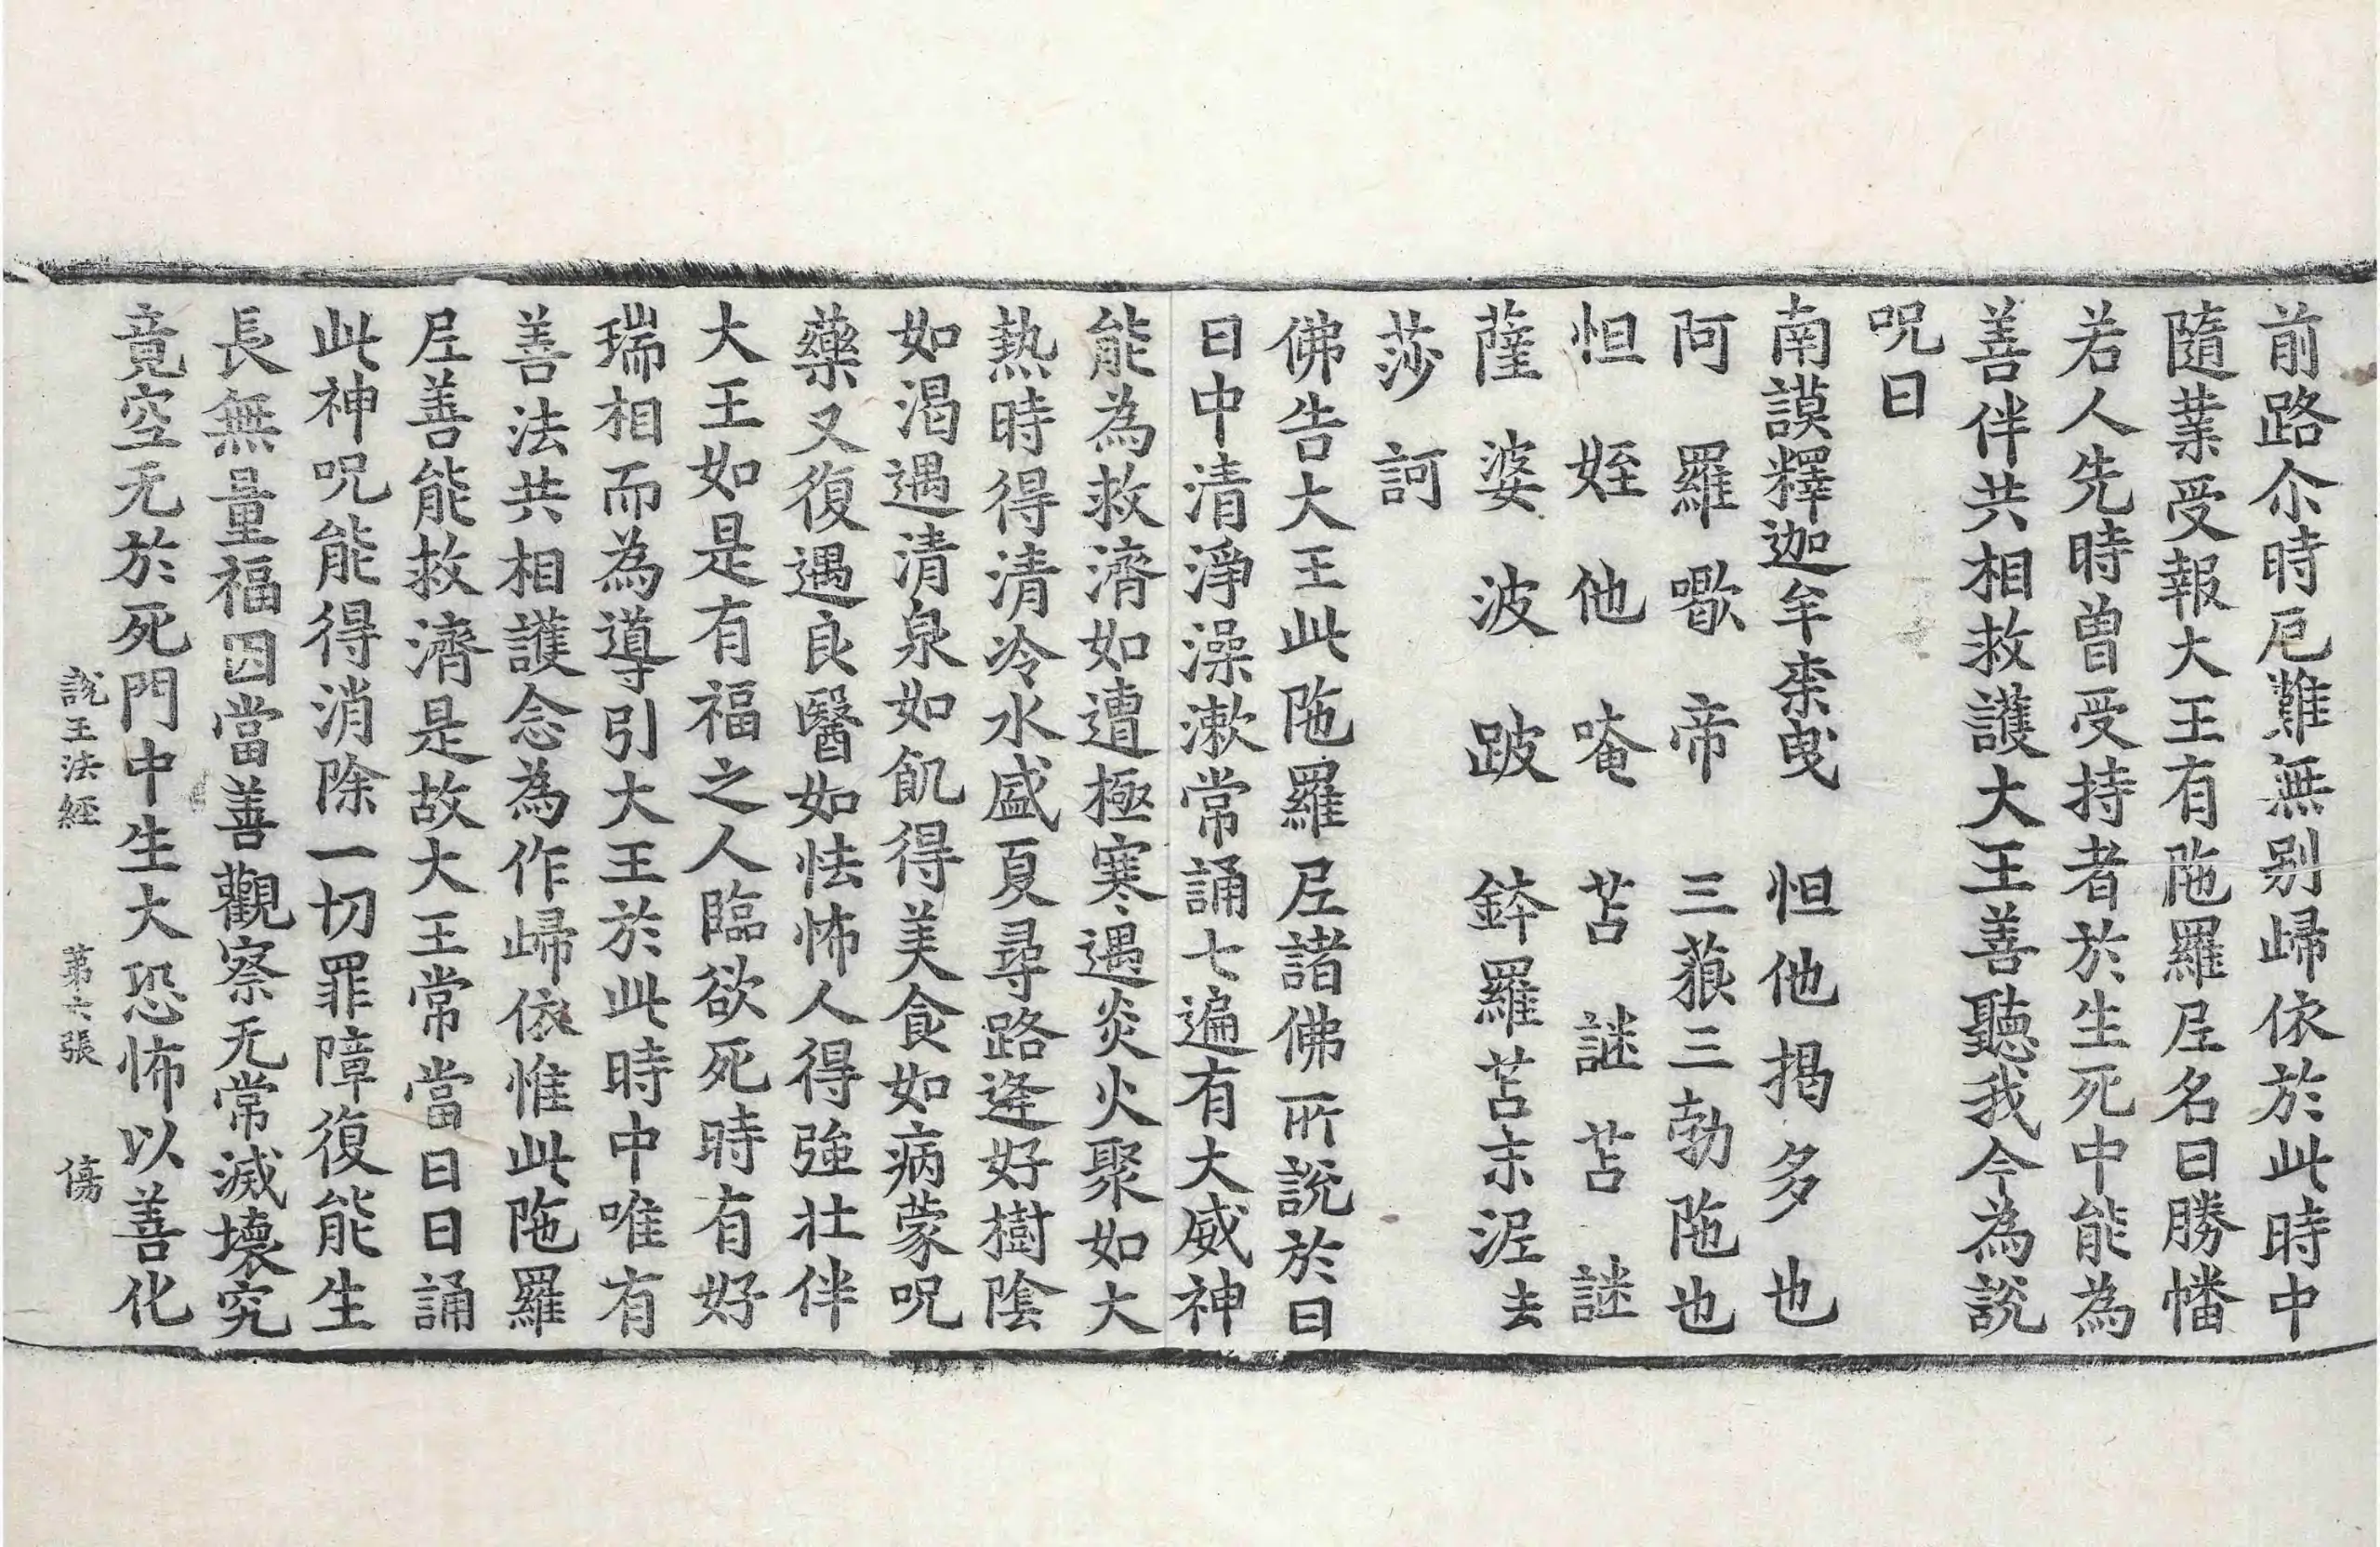 前路尒時厄難無別歸依於此時中
隨業受報大王有陁羅𡰱名曰勝幡
若人先時曾受持者於生死中能為
善伴共相救護大王善聽我今為說
呪曰
南謨釋迦牟柰曳 怛他揭多也
阿羅歇帝 三藐三勃陁也
怛姪他唵 苫謎苫謎
薩婆波跛 鉢羅苫末泥去
莎訶
佛告大王此陁羅𡰱諸佛所說於日
日中清淨澡漱常誦七遍有大威神
能為救濟如遭極寒遇炎火聚如大
熱時得清冷水盛夏尋路逢好樹陰
如渴遇清泉如飢得美食如病蒙呪
藥又復遇良醫如怯怖人得強壯伴
大王如是有福之人臨欲死時有好
瑞相而為導引大王於此時中唯有
善法共相護念為作歸依惟此陁羅
𡰱善能救濟是故大王常當日日誦
此神呪能得消除一切罪障復能生
長無量福因當善觀察无常滅壞究
竟空无於死門中生大恐怖以善化
說王法經 第六張 傷